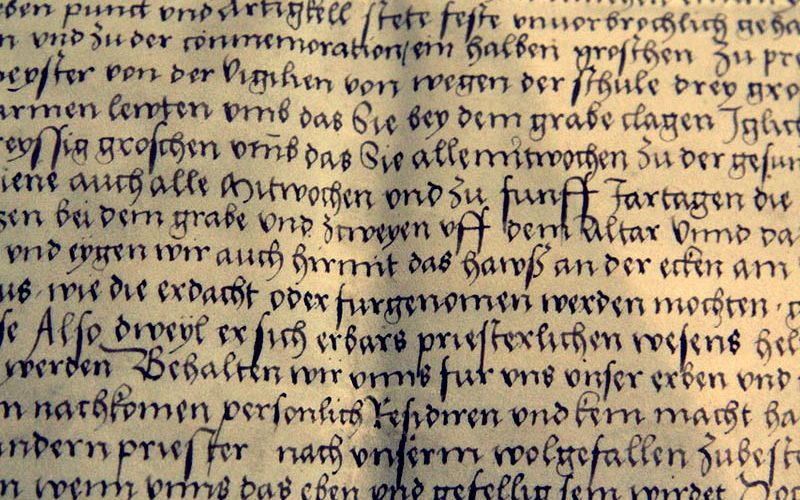 ben punct vnd Artigkell stete feste vnvorbrochlich geha
n vnd zu der commemoration ein halben groschen zu pre
peyster von der vigilien von wegen der schule drey gro
armen lewten vmb das Sie bey dem grabe clagen Iglich
reyssig groschen vmb das Sie alle mitwochen zu der gesun
iene auch alle Mitwochen vnd zu funff Jartagen die
gen bei dem grabe vnd zcweyen vff dem Altar Vnnd da
vnd eygen wir auch hirmit das hawß an der ecken am
us wie die erdacht oder furgenomen werden mochten g
se Also dweyl er sich erbars priesterlichen wesens hel
werden Behalten wir vnns fur vns vnser erben vnd
n nachkomen personlich Residiren vnd kein macht ha
andern priester nach vnserm wolgefallen zubeste
n wenn vnns das eben vnd gefellig sein wirdet